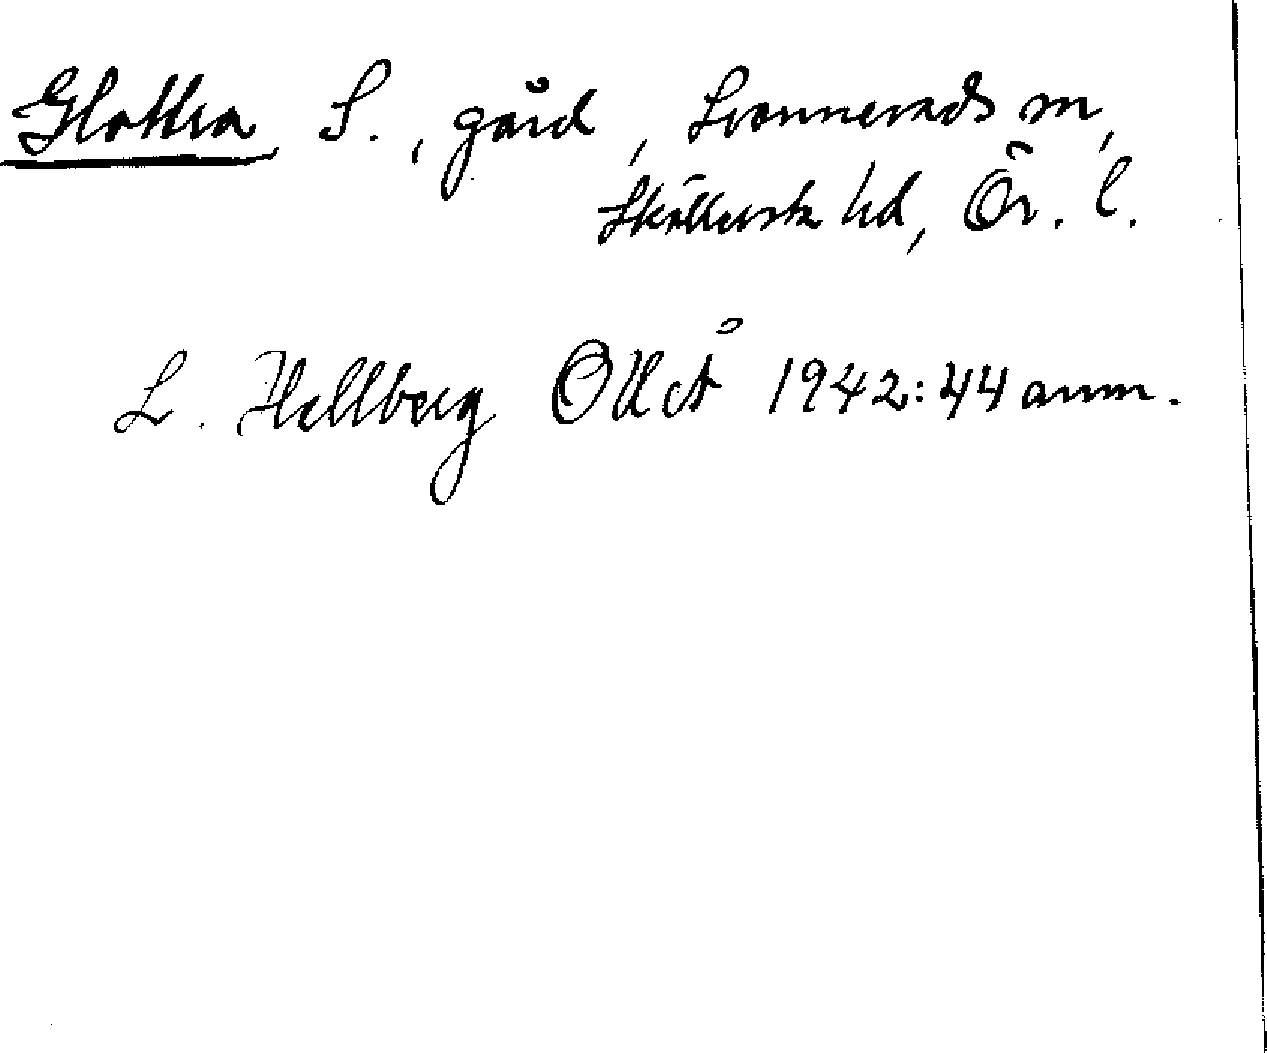 Glottra S., gård, Svennevads sn,
Sköllersta hd, Ör. l.
L. Hellberg OUÅ 1942:44 anm.